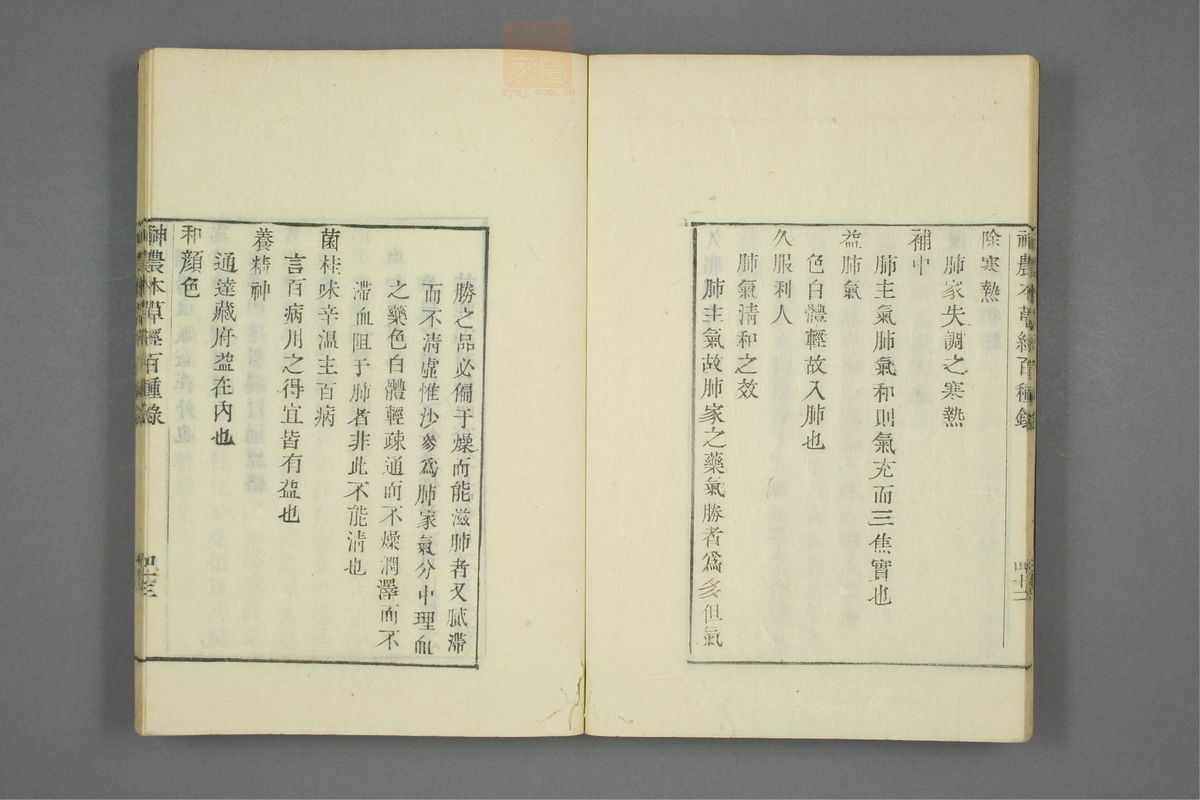 神農本草經百種錄
除寒熱
肺家失調之寒熱
補中
肺主氣肺氣和則氣充而三焦實也
益肺氣
色白體輕故入肺也
久服利人
肺氣清和之效
肺主氣故肺家之藥氣勝者爲多但氣
四十二
勝之品必偏于燥而能滋肺者又膩滯
而不清虛惟沙參爲肺家氣分中理血
之藥色白體輕疎通而不燥潤澤而不
滯血阻于肺者非此不能清也
菌桂味辛溫主百病
言百病用之得宜皆有益也
養精神
通達藏府益在內也
和顏色
神農本草經百種錄
四十三
zysj.com.cn